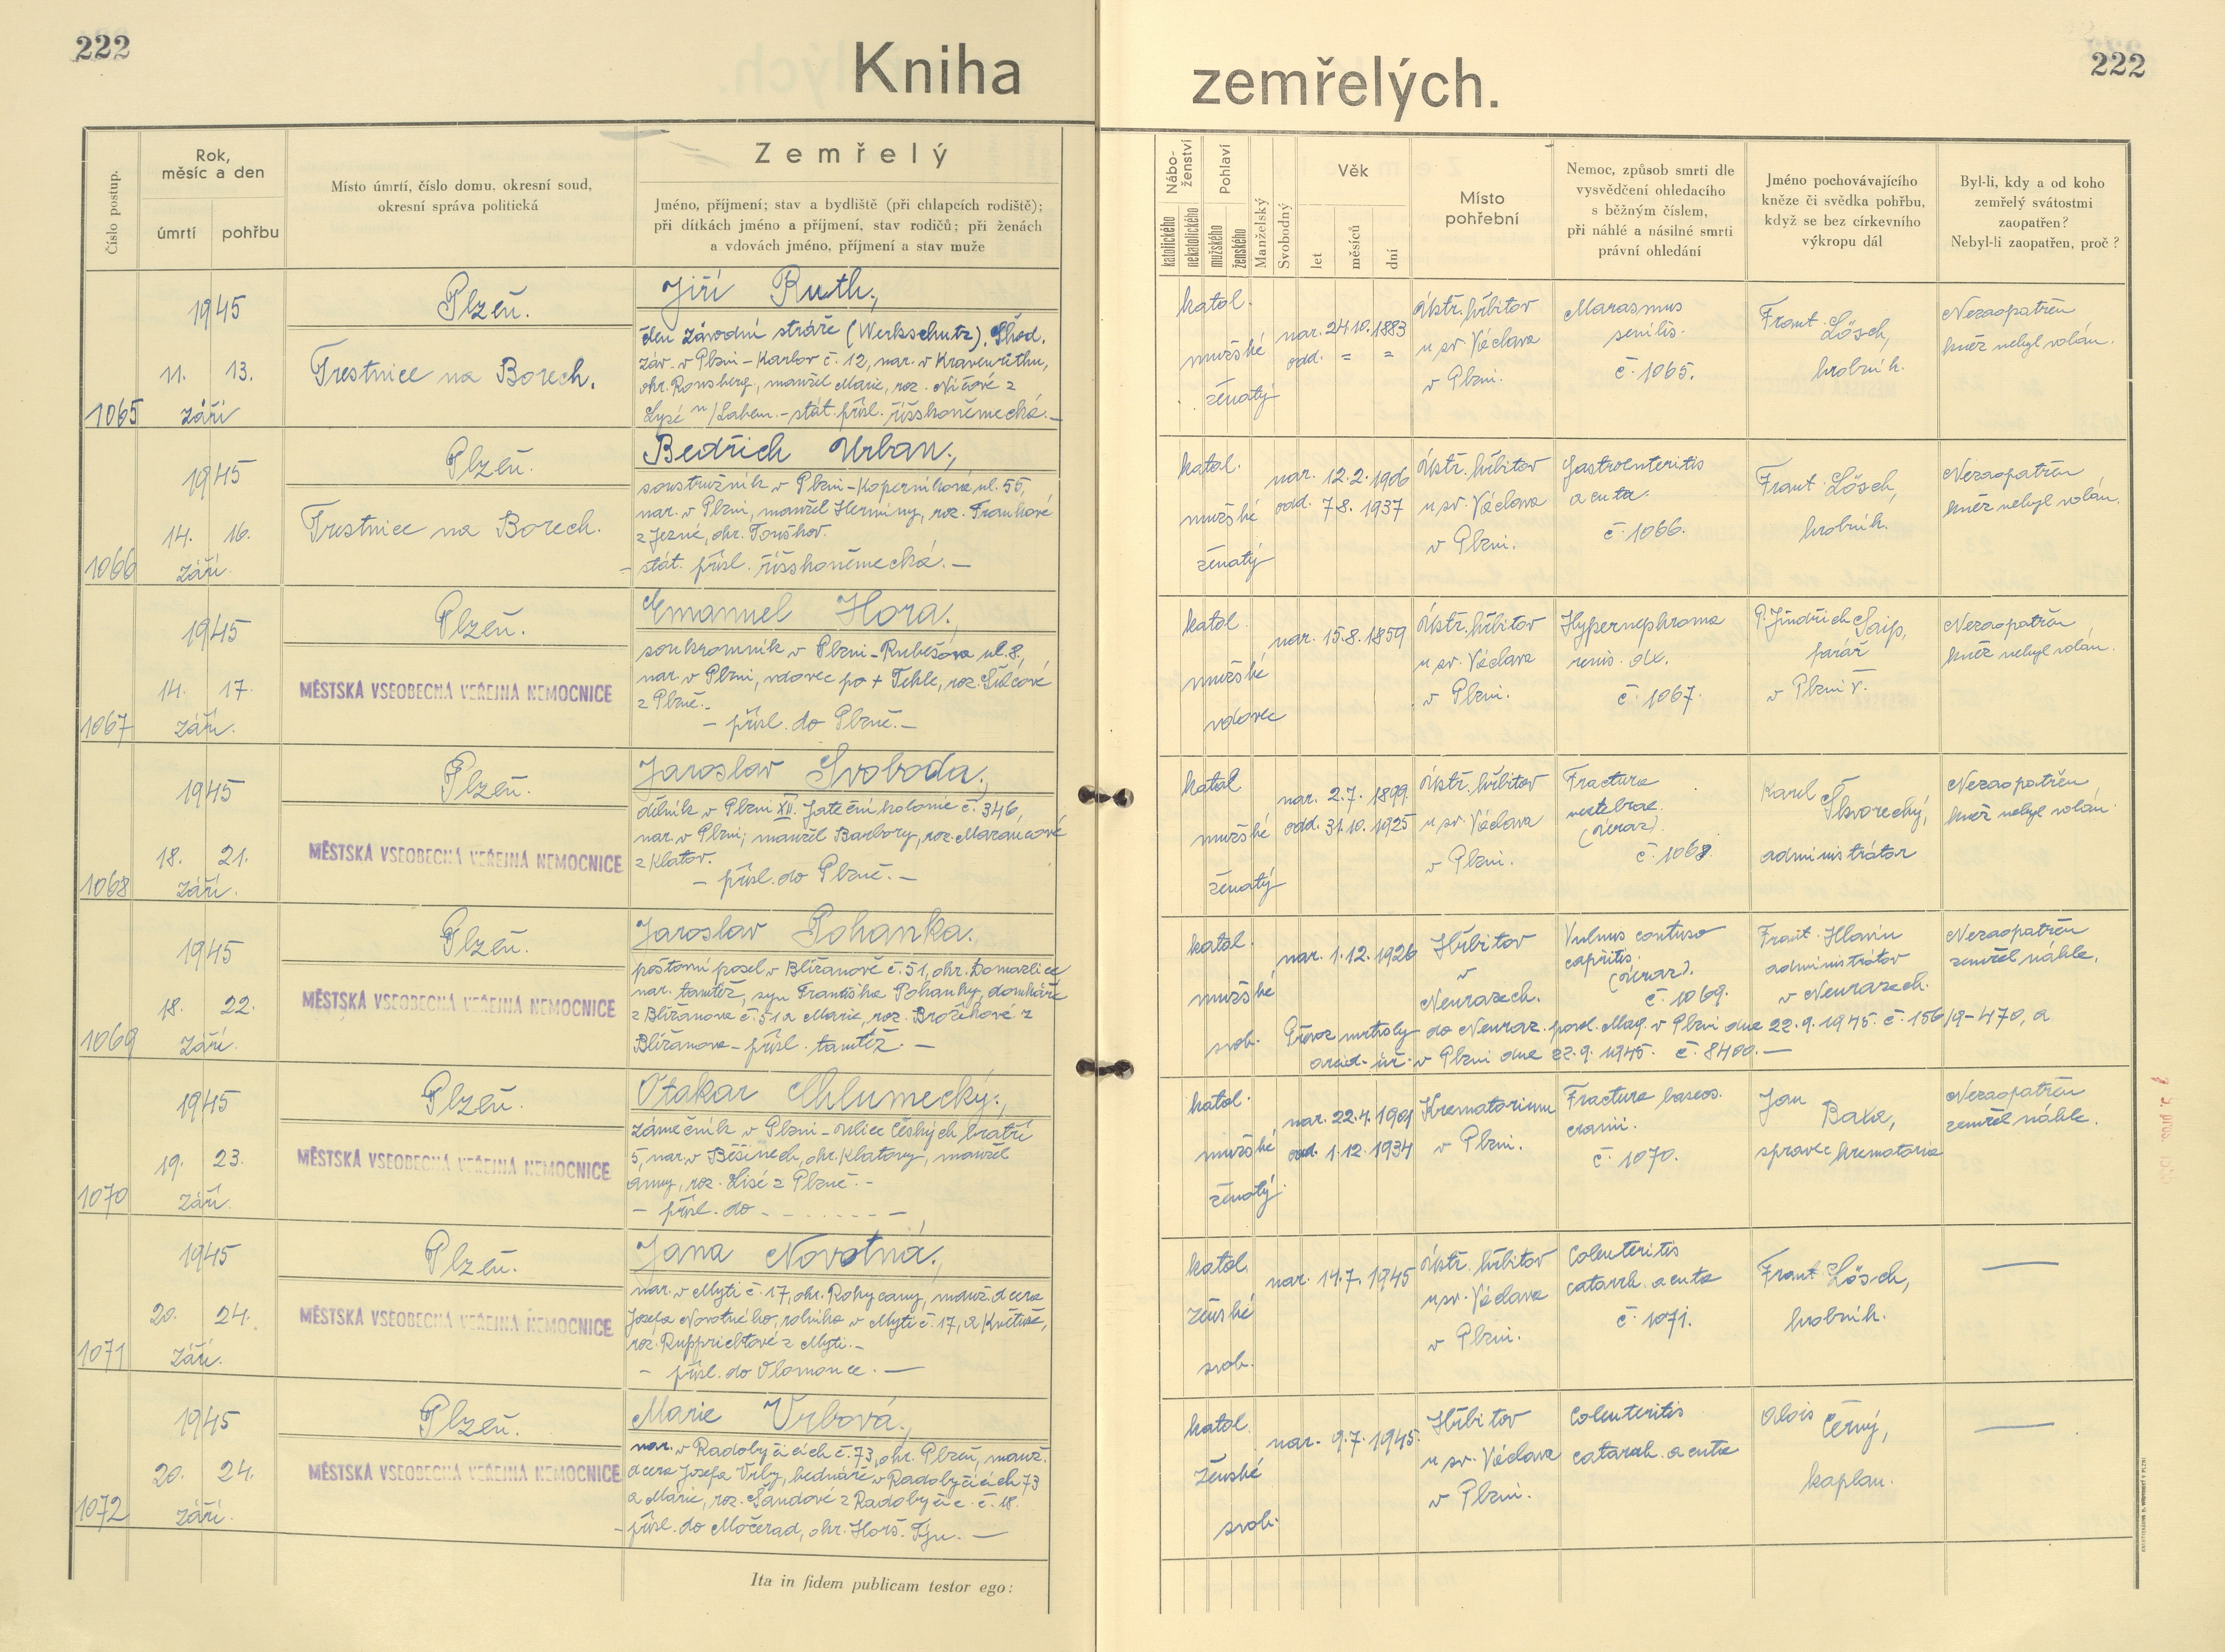 222
Kniha
zemřelých.
222
Číslo postup.
Rok,
měsíc a den
úmrtí
pohřbu
Místo úmrtí, číslo domu, okresní soud,
okresní správa politická
Zemřelý
Jméno, příjmení; stav a bydliště (při chlapcích rodiště);
při dítkách jméno a příjmení, stav rodičů; při ženách
a vdovách jméno, příjmení a stav muže
Nábo-
ženství
katolického
nekatolického
Pohlaví
mužského
ženského
Manželský
Svobodný
Věk
let
měsíců
dní
Místo
pohřební
Nemoc, způsob smrti dle
vysvědčení ohledacího
s běžným číslem,
při náhlé a násilné smrti
právní ohledání
Jméno pochovávajícího
kněze či svědka pohřbu,
když se bez církevního
výkropu dál
Byl-li, kdy a od koho
zemřelý svátostmi
zaopatřen?
Nebyl-li zaopatřen, proč?
1065
1945
11. 13.
září
Plzeň.
Trestnice na Borech.
Jiří Ruth.,
člen závodní stráže (Werkschutz). Škod.
záv. v Plzni - Karlov č. 12, nar. v
okr. Ronsberg, manžel Marie, roz. z
Lysé n/Labem. - stát. přísl. říšskoněmecká. -
katol.
mužské
ženatý
nar. 24.10.1883
odd. = =
Ústř. hřbitov
u sv. Václava
v Plzni.
Marasmus
senilis.
č. 1065.
Frant. Lösch,
hrobník.
Nezaopatřen
kněz nebyl volán.
1066
1945
14. 16.
září.
Plzeň.
Trestnice na Borech.
Bedřich Urban.,
soustružník v Plzni - Koperníkova ul. 55,
nar. v Plzni, manžel Herminy, roz. Frankové
z Jezné, okr. Touškov.
- stát. přísl. říšskoněmecká. -
katol.
mužské
ženatý
nar. 12.2.1906
odd. 7.8. 1937
Ústř. hřbitov
u sv. Václava
v Plzni.
Gastroenteritis
acuta.
č. 1066.
Frant. Lösch,
hrobník.
Nezaopatřen
kněz nebyl volán.
1067
1945
14. 17.
září.
Plzeň.
MĚSTSKÁ VŠEOBECNÁ VEŘEJNÁ NEMOCNICE
Emanuel Hora.,
soukromník v Plzni - Rubešova ul. 8,
nar. v Plzni, vdovec po + Tekle, roz.
z Plzně. -
- přísl. do Plzně. -
katol.
mužské
vdovec
nar. 15.8.1859
Ústř. hřbitov
u sv. Václava
v Plzni.
Hypernephroma
renis. dx.
č. 1067.
P. Jindřich Saip,
farář
v Plzni V.
Nezaopatřen
kněz nebyl volán.
1068
1945
18. 21.
září.
Plzeň.
MĚSTSKÁ VŠEOBECNÁ VEŘEJNÁ NEMOCNICE
Jaroslav Svoboda.,
dělník v Plzni XII. Jateční kolonie č. 346,
nar. v Plzni; manžel Barbory, roz.
z Klatov.
- přísl. do Plzně. -
katol
mužské
ženatý
nar. 2.7. 1899.
odd. 31.10. 1925
Ústř. hřbitov
u sv. Václava
v Plzni.
Fractura
vertebrae.
(úraz).
č. 1068.
Karel Škvorecký,
administrátor
Nezaopatřen
kněz nebyl volán.
1069
1945
18. 22.
září.
Plzeň.
MĚSTSKÁ VŠEOBECNÁ VEŘEJNÁ NEMOCNICE
Jaroslav Pohanka.,
poštovní posel v Blížanově č. 51, okr. Domažlice
nar. tamtéž, syn Františka Pohanky, domkáře
z Blížanova č. 51 a Marie, roz. Brožíkové z
Blížanova - přísl. tamtéž. -
katol.
mužské
svob.
nar. 1.12.1926
Hřbitov
v
Neurazech.
Vulnus contuso
capitis.
(úraz).
č. 1069.
Frant. Hlavín
administrátor
v Neurazech.
Nezaopatřen
zemřel náhle.
Převoz mrtvoly do Neuraz. povol. Mag. v Plzni dne 22.9.1945. č. 156/9-470, a
arcid. úř. v Plzni dne 22.9. 1945. č. 8400. -
1070
1945
19. 23.
září.
Plzeň.
MĚSTSKÁ VŠEOBECNÁ VEŘEJNÁ NEMOCNICE
Otakar Chlumecký.,
zámečník v Plzni - ulice Českých bratří
5, nar. v Běšinech, okr. Klatovy, manžel
Anny, roz. Lisé z Plzně. -
- přísl. do - - - - - - -
katol.
mužské
ženatý.
nar. 22.4.1901
odd. 1.12.1934
Krematorium
v Plzni.
Fractura baseos.
cranii.
č. 1070.
Jan Baxa,
správce krematoria
Nezaopatřen
zemřel náhle.
1071
1945
20. 24.
září.
Plzeň.
MĚSTSKÁ VŠEOBECNÁ VEŘEJNÁ NEMOCNICE
Jana Novotná.,
nar. v Mýti č. 17, okr. Rokycany, manž. dcera
Josefa Novotného, rolníka v Mýti č. 17, a Květuše,
roz. Rupprichtové z Mýti. -
- přísl. do Olomouce. -
katol.
ženské
svob.
nar. 14.7. 1945
Ústř. hřbitov
u sv. Václava
v Plzni.
Coleuteritis
catarrh. acuta
č. 1071.
Frant. Lösch,
hrobník.
1072
1945
20. 24.
září.
Plzeň.
MĚSTSKÁ VŠEOBECNÁ VEŘEJNÁ NEMOCNICE
Marie Vrbová.,
nar. v Radobyčicích č. 73, okr. Plzeň, manž.
dcera Josefa Vrby, bednáře v Radobyčicích 73
a Marie, roz. Šandové z Radobyčic č. 18.
- přísl. do Močerad, okr. Horš. Týn. -
katol.
ženské
svob.
nar. 9.7. 1945.
Hřbitov
u sv. Václava
v Plzni.
Coleuteritis
catarrh. acuta
Alois Černý,
kaplan.
Ita in fidem publicam testor ego: